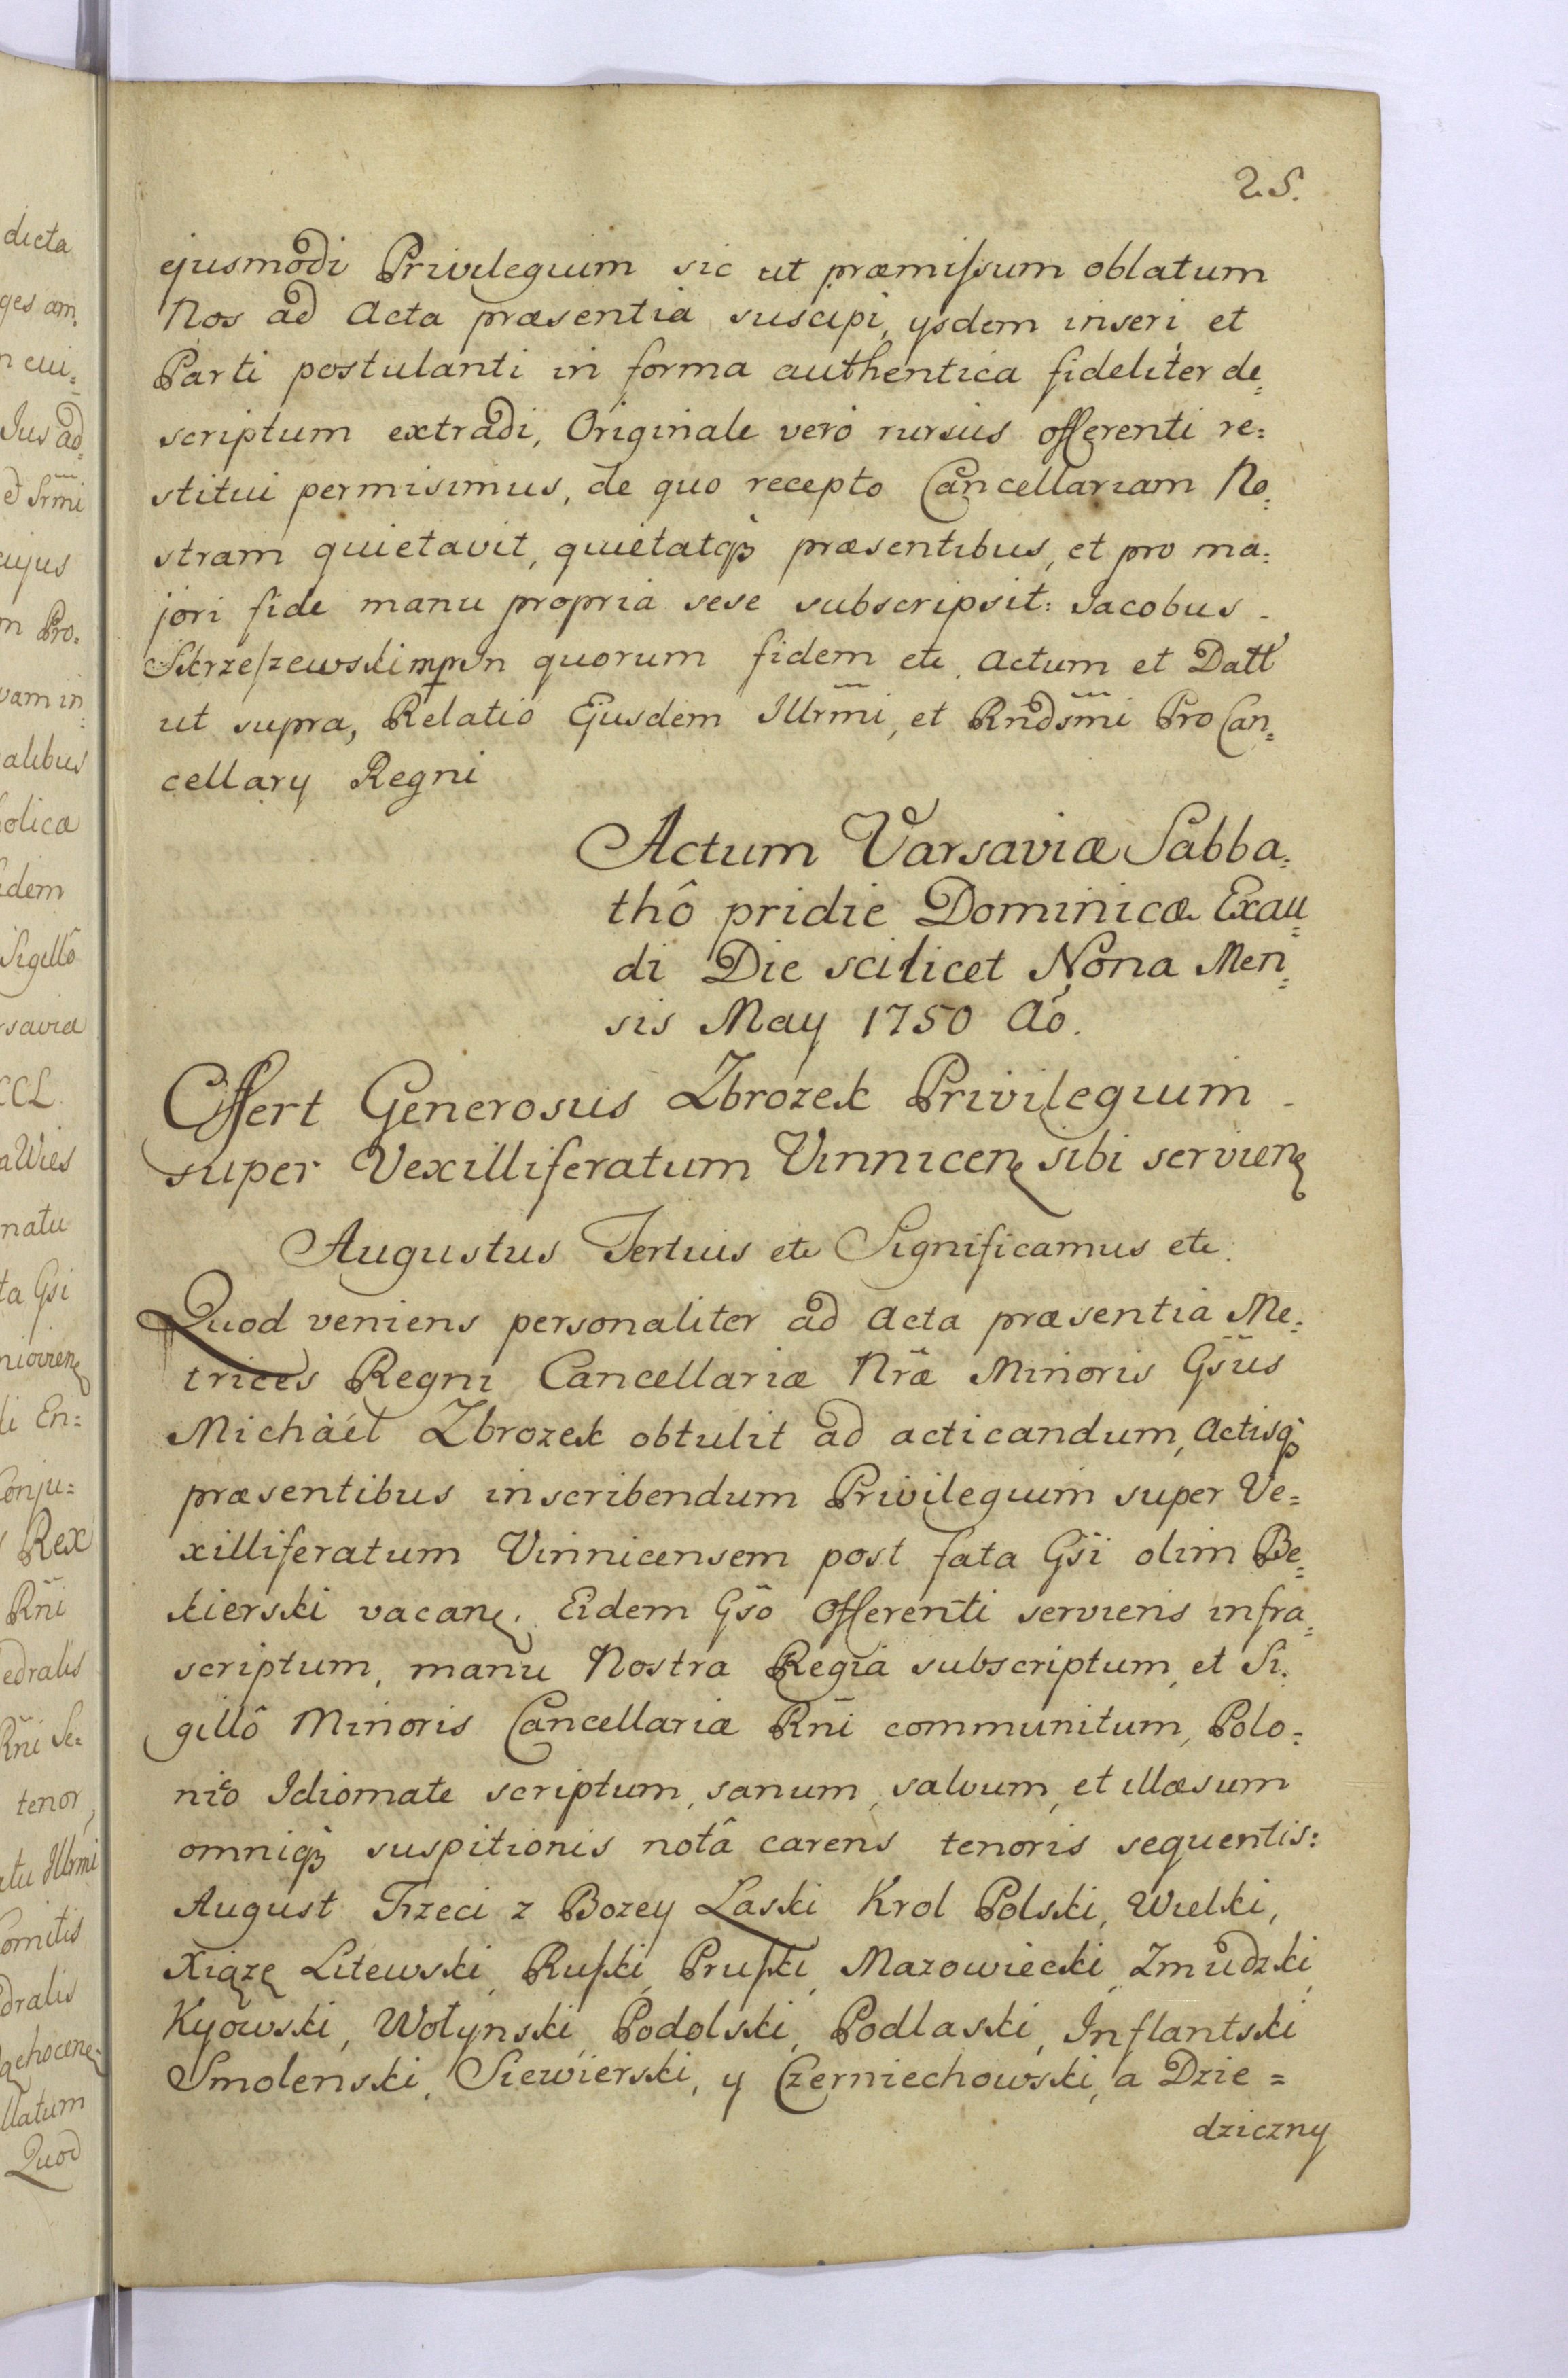 25.
ejusmodi Privilegium sic ut præmissum oblatum
Nos ad Acta præsentia suscipi, ysdem inseri et
Parti postulanti in forma authentica fideliter de=
scriptum extradi, Originale vero rursus offerenti re=
stitui permisimus, de quo recepto Cancellariam No=
stram quietavit, quietatqꝫ præsentibus, et pro ma=
jori fide manu propria sese subscripsit: Jacobus -
Skrzeszewski mpr In quorum fidem etc. Actum et Datt
ut supra, Relatio Ejusdem Illrmi, et Rndsmi ProCan=
cellary Regni
Actum Varsaviæ Sabba=
thô pridie Dominicæ Exau=
di Die scilicet Nona Men=
sis May 1750 Ao.
Offert Generosus Zbrozek Privilegium -
super Vexilliferatum Vinnicen sibi servien
Augustus Tertius etc Significamus etc.
Quod veniens personaliter ad Acta præsentia Me=
trices Regni Cancellariæ Nræ Minoris Gsus
Michàél Zbrozek obtulit ad acticandum, Actisqꝫ
præsentibus inscribendum Privilegium super Ve=
xilliferatum Vinnicensem post fata Gsi olim Be=
kierski vacan. Eidem Gso Offerenti serviens infra=
scriptum, manu Nostra Regia subscriptum, et Si=
gillô Minoris Cancellariæ Rni communitum, Polo=
nico Idiomate scriptum, sanum, salvum, et illæsum
omniqꝫ suspitionis notâ carens tenoris sequentis:
August Trzeci z Bozey Laski Krol Polski, Wielki,
Xiążę Litewski, Ruski, Pruski, Mazowiecki, Zmudzki,
Kyowski, Wołynski, Podolski, Podlaski, Inflantski
Smolenski, Siewierski, y Czerniechowski, a Dzie=
dziczny